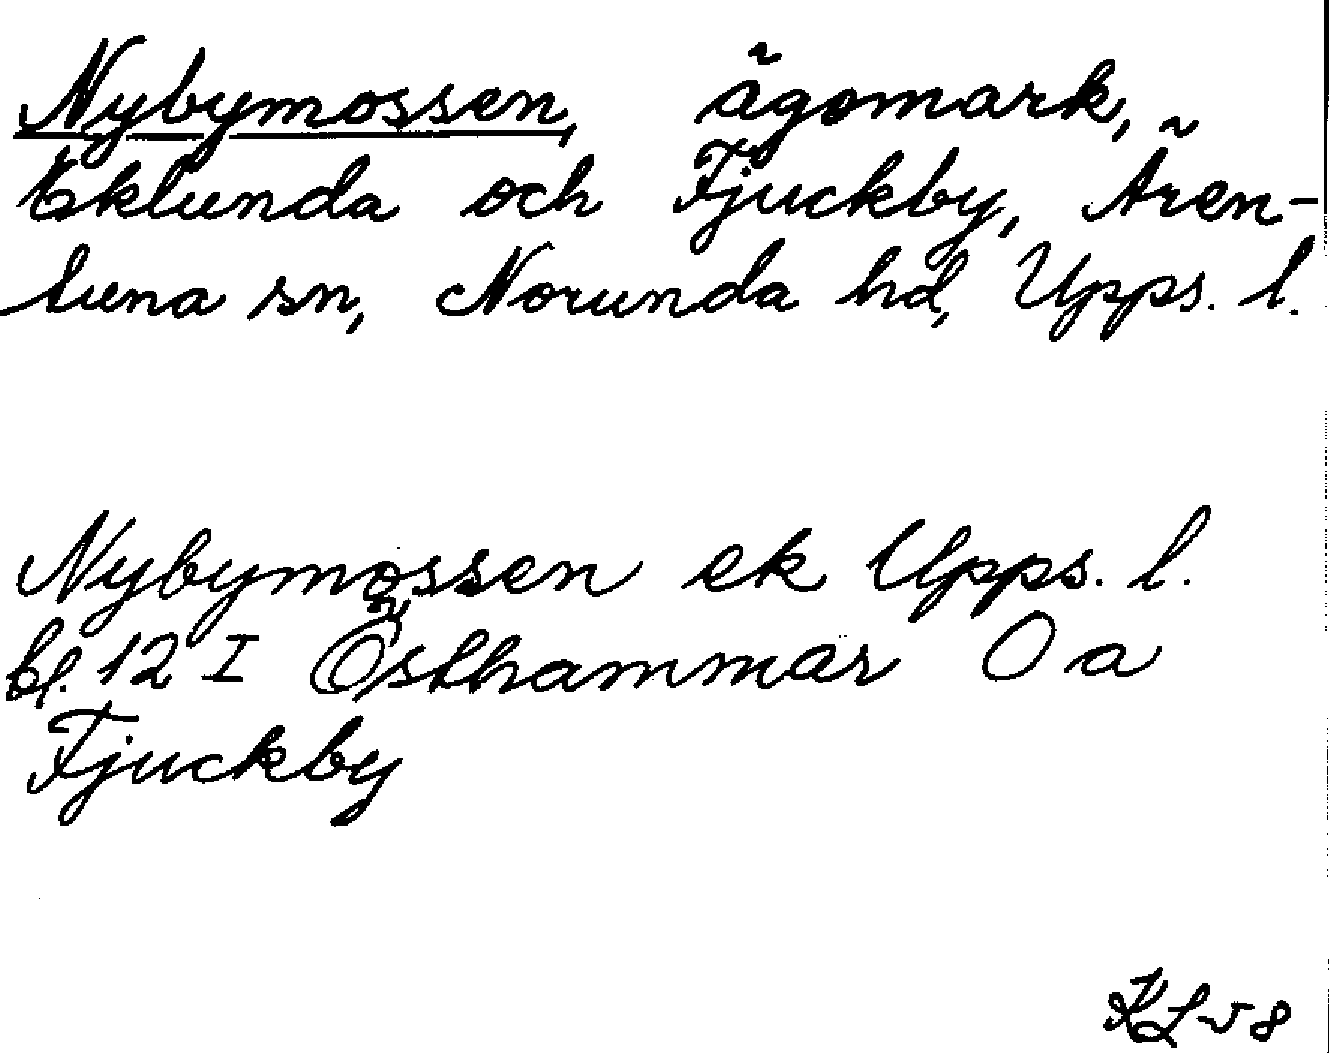 Nybymossen, ägomark,
Eklunda och Fjuckby, Ären-
tuna sn, Norunda hd, Upps. l.
Nybymossen ek Upps. l.
bl. 12 I Östhammar O a
Fjuckby
KL 58